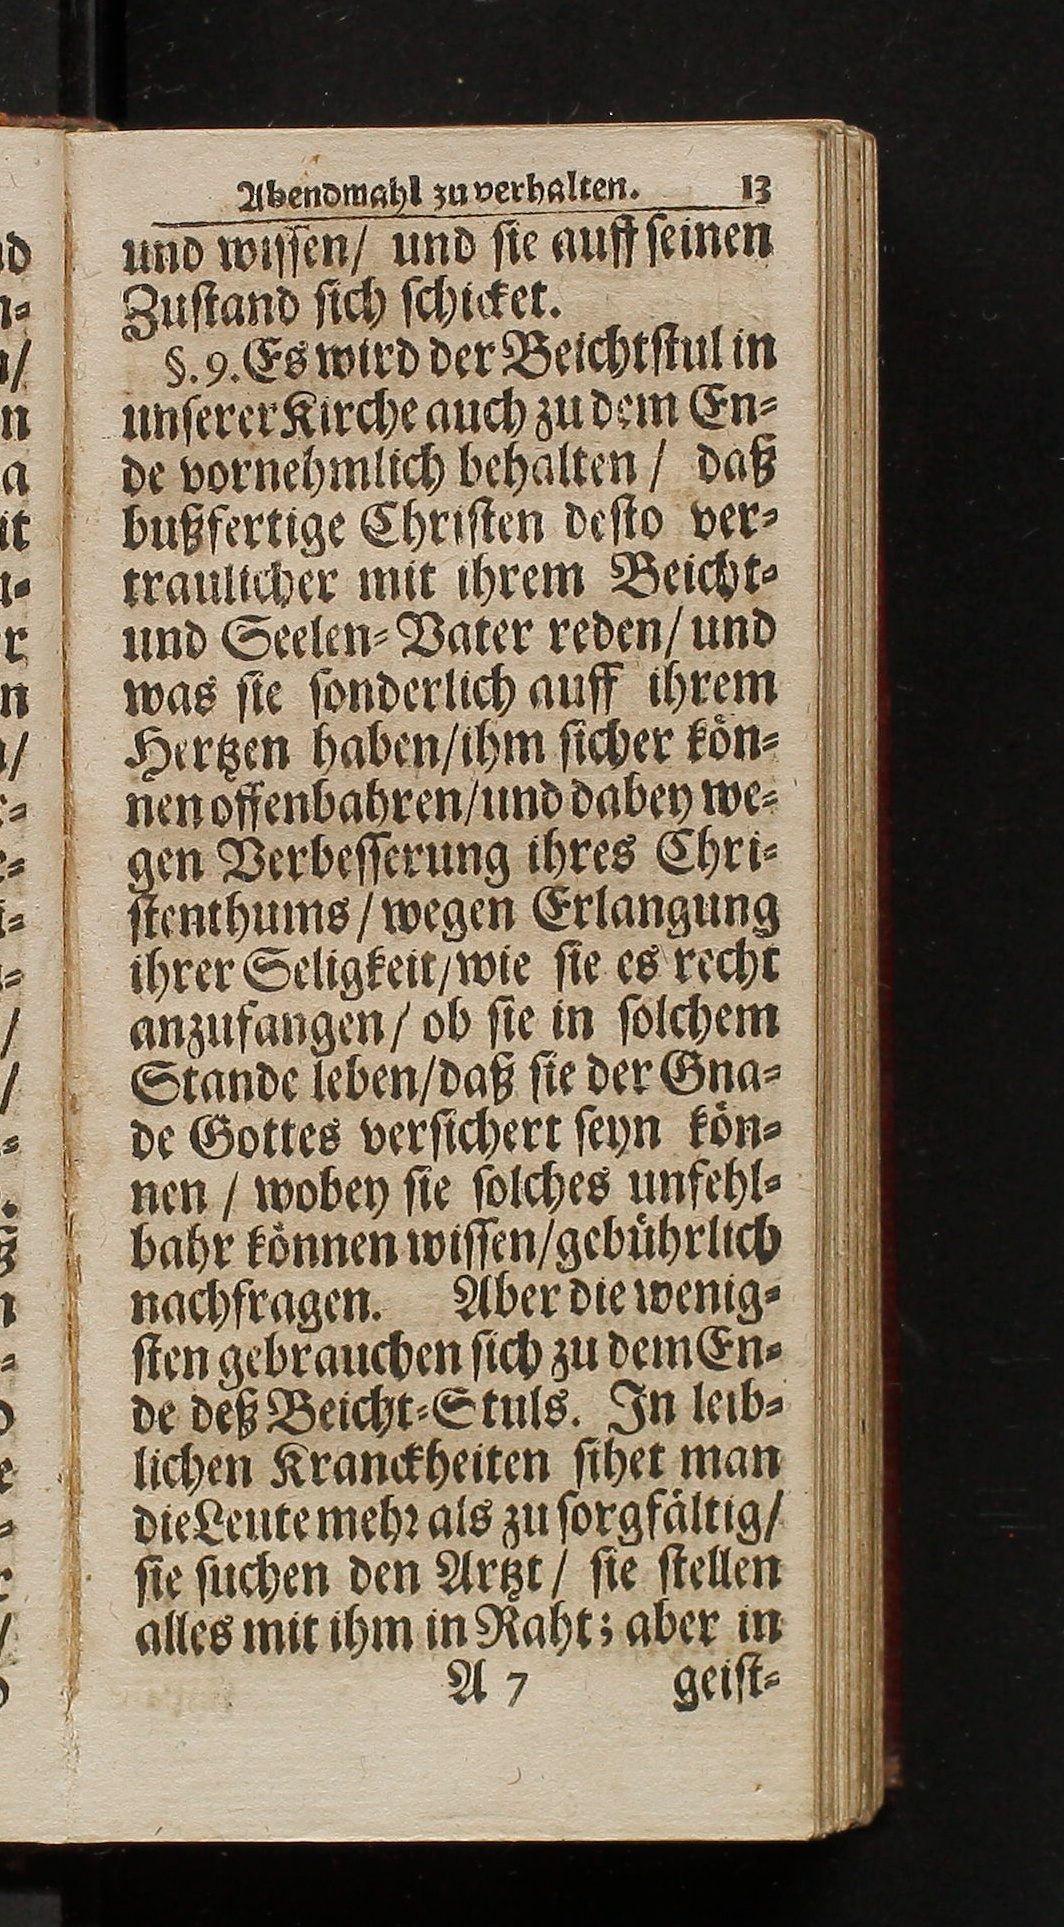 Abendmahl zu verhalten. 13
und wissen/ und sie auff seinen
Zustand sich schicket.
§. 9. Es wird der Beichtstul in
unserer Kirche auch zu dem En-
de vornehmlich behalten / daß
bußfertige Christen desto ver-
traulicher mit ihrem Beicht-
und Seelen-Vater reden/ und
was sie sonderlich auff ihrem
Hertzen haben/ihm sicher kön-
nen offenbahren/und dabey we-
gen Verbesserung ihres Chri-
stenthums/ wegen Erlangung
ihrer Seligkeit/wie sie es recht
anzufangen/ ob sie in solchem
Stande leben/daß sie der Gna-
de Gottes versichert seyn kön-
nen / wobey sie solches unfehl-
bahr können wissen/gebührlich
nachfragen. Aber die wenig-
sten gebrauchen sich zu dem En-
de deß Beicht-Stuls. In leib-
lichen Kranckheiten sihet man
die Leute mehr als zu sorgfältig/
sie suchen den Artzt / sie stellen
alles mit ihm in Raht; aber in
A 7 geist-